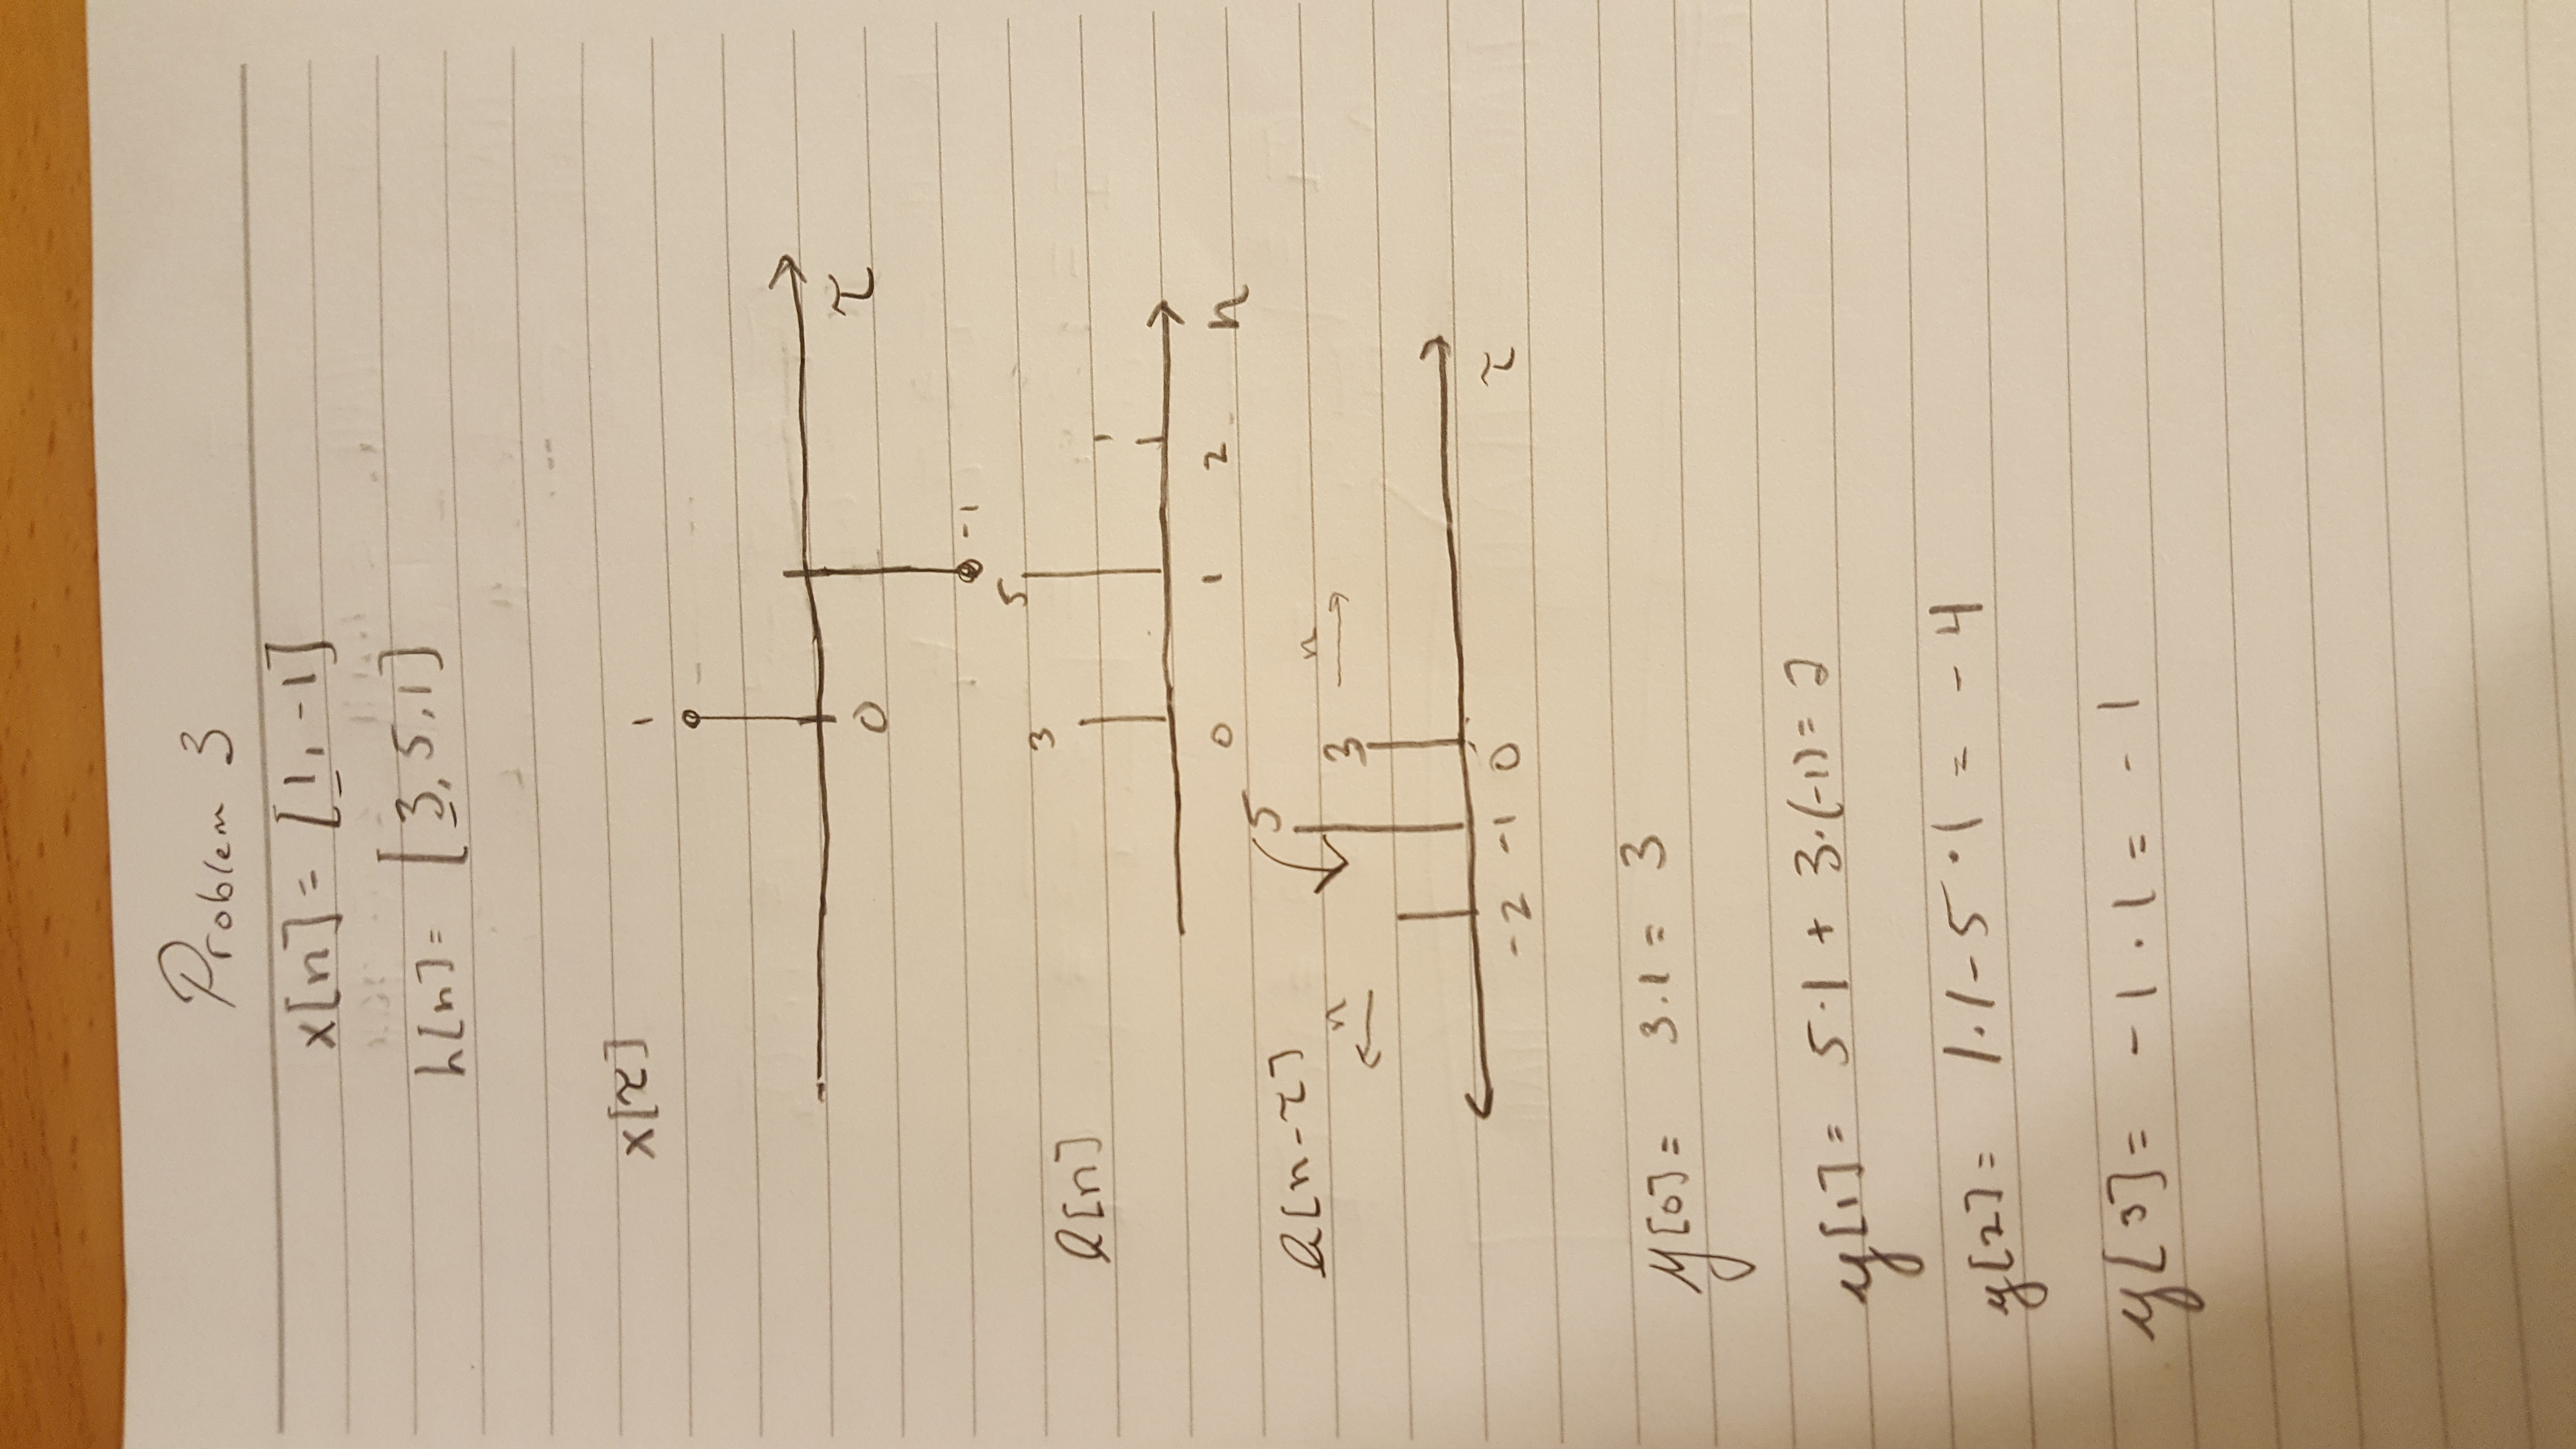 Problem 3
x[n] = [1, -1]
h[n] = [3, 5, 1]
x[τ]
1
0
τ
-1
h[n]
3
5
1
0 1 2 n
h[n-τ]
5
n
3
n
-2 -1 0 τ
y[0] = 3·1 = 3
y[1] = 5·1 + 3·(-1) = 2
y[2] = 1·1 - 5·1 = -4
y[3] = -1·1 = -1